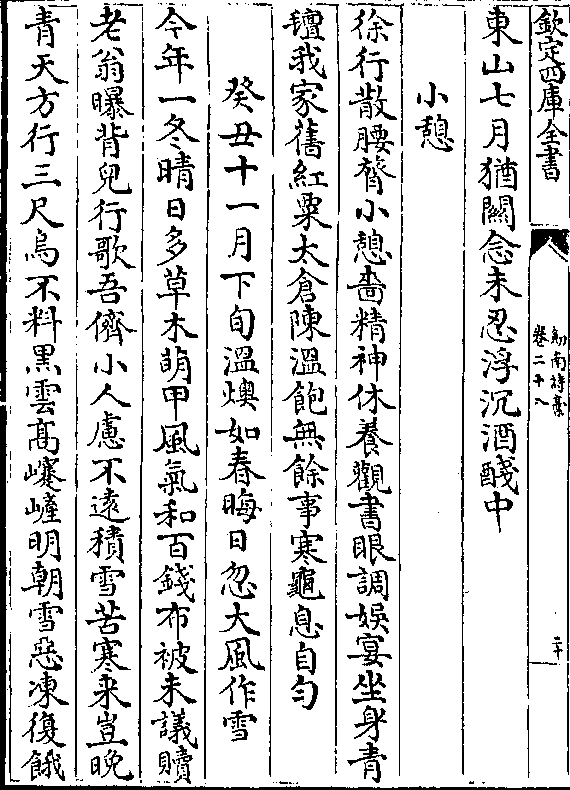 欽定四庫全書
劍南詩藁
卷二十八
二十
東山七月猶關念未忍浮沉酒醆中
小憩
徐行散腰膂小憩嗇精神休養觀書眼調娛宴坐身青
氊我家舊紅粟太倉陳溫飽無餘事寒龜息自勻
癸丑十一月下旬溫燠如春晦日忽大風作雪
今年一冬晴日多草木萌甲風氣和百錢布被未議贖
老翁曝背兒行歌吾儕小人慮不遠積雪苦寒来豈晚
青天方行三尺烏不料黑雲髙㠥嵼明朝雪惡凍復餓